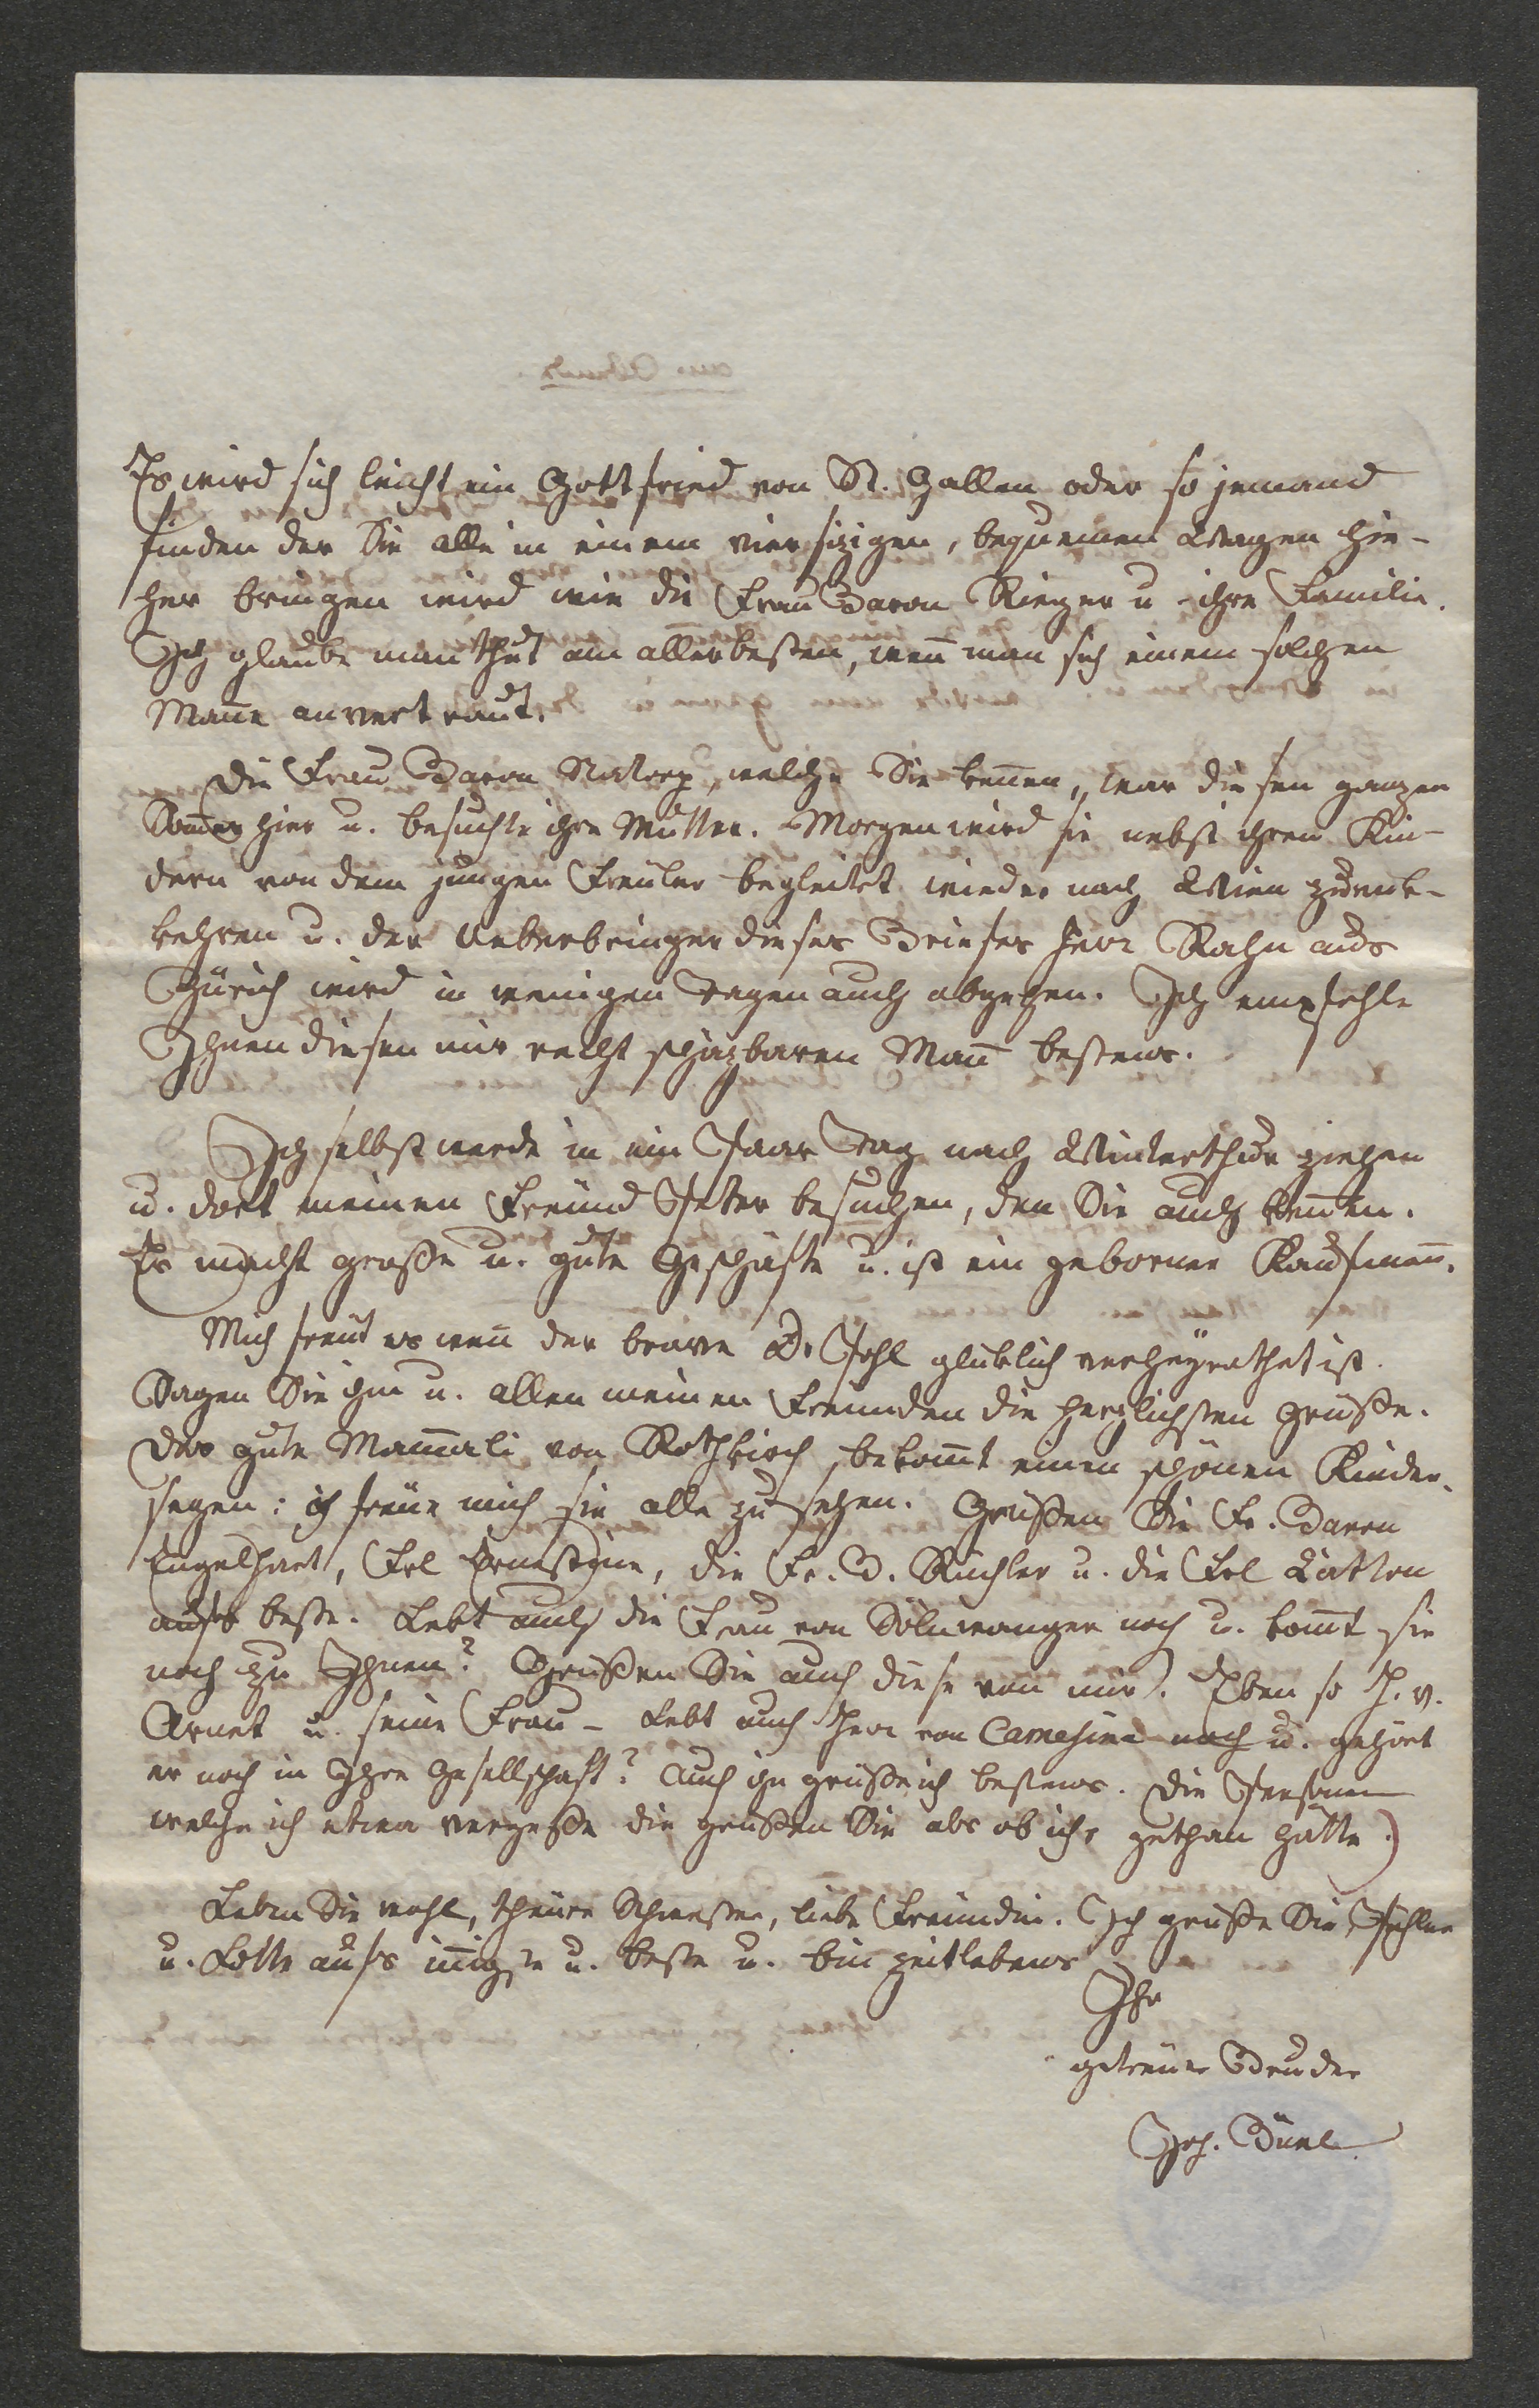 Es wird sich leicht ein Gottfried von St. Gallen oder so jemand
finden der Sie alle in einem viersizigen, bequemen Wagen hie-
her bringen wird wie die Frau Baron Rieger u. ihre Familie.
Ich glaube man thut am allerbesten, weñ man sich einem solchen
Mañe anvertraut.
Die Frau Baron Natorp, welche Sie keñen, war diesen ganzen
Som̃er hier u. besuchte ihre Mutter. Morgen wird sie nebst ihren Kin-
dern von dem jungen Freuler begleitet wieder nach Wien zurük-
kehren u. der Ueberbringer dieses Briefes Herr Rahn aus
Zürich wird in wenigen Tagen auch abgehen. Ich empfehle
Ihnen diesen mir recht schäzbaren Mañ bestens.
Ich selbst werde in ein Paar Tag nach Winterthur ziehen
u. dort meinen Freund Peter besuchen, den Sie auch keñen.
Er macht große u. gute Geschäfte u. ist ein geborner Kaufmañ.
Mich freut es weñ der brave D. Pohl glüklich verheyrathet ist.
Sagen Sie ihm u. allen meinen Freunden die herzlichsten Grüße.
Das gute Mam̃ali von Rothkirch bekom̃t einen schönen Kinder-
segen: ich freue mich sie alle zu sehen. Grüßen Sie Fr. Baron
Engelhart, Frl Ernestine, die Fr. v. Büchler u. die Frl Latton
aufs beste. Lebt auch die Frau von Sölmanger noch u. kom̃t sie
noch zu Ihnen? Grüßen Sie auch diese von mir. Eben so H. v.
Arnet u. seine Frau – Lebt auch Herr von Camesina noch u. gehört
er noch in Ihre Gesellschaft? Auch ihn grüße ich bestens. Die Personen
welche ich etwa vergeße die grüßen Sie als ob ichs gethan hätte.)
Leben Sie wohl, theure Schwester, liebe Freundin. Ich grüße Sie, Pichler
u. Lotte aufs iñigste u. beste u. bin zeitlebens
Ihr
getreuer Bruder
Joh. Büel